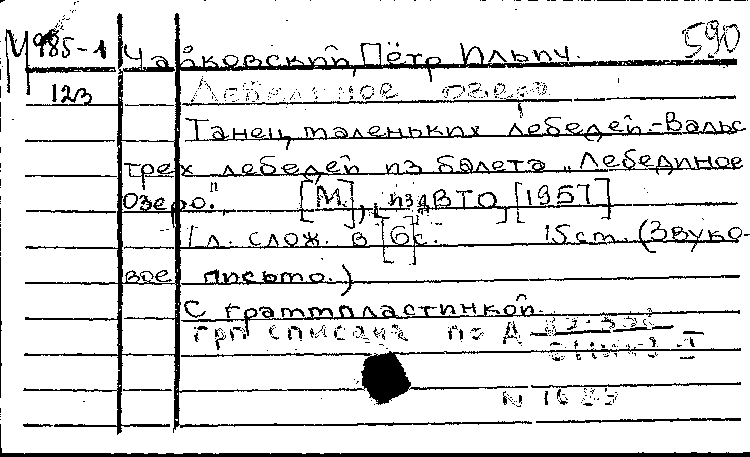 М 985-1 Чайковский, Пётр Ильич. 590
123 Лебединое озеро
Танец маленьких лебедей.-Вальс
трех лебедей из балета „Лебединое
озеро." [М.], [изд ВТО, [1957]
1 л. слож. в [6]с. 15 ст. (Звуко-
вое письмо.)
С граммпластинкой.
грп списана по А
N 1689